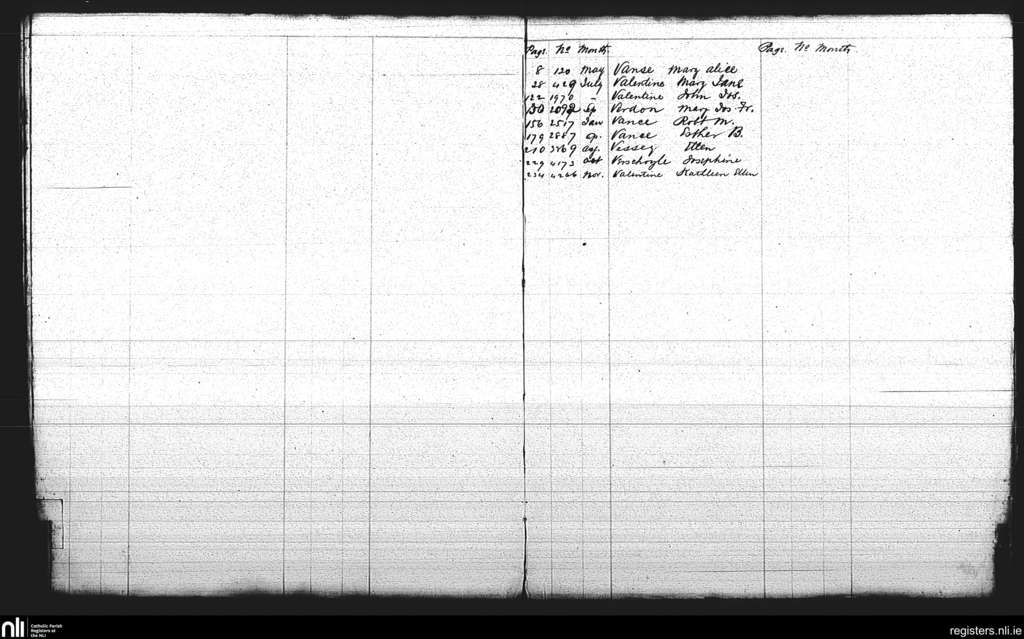 Page. No Month
8 120 May Vanse Mary Alice
28 429 July Valentine Mary Jane
122 1970 " Valentine John Jos.
130 2092 Sp Verdon Mary Jos. Fr.
156 2517 Jan Vance Robt M.
179 2887 Ap. Vance Esther B.
210 3869 Ag. Vessey Ellen
229 4173 Oct Verschoyle Josephine
234 4266 Nov. Valentine Kathleen Ellen
Page. No Month
nli Catholic Parish
Registers at
the NLI
registers.nli.ie